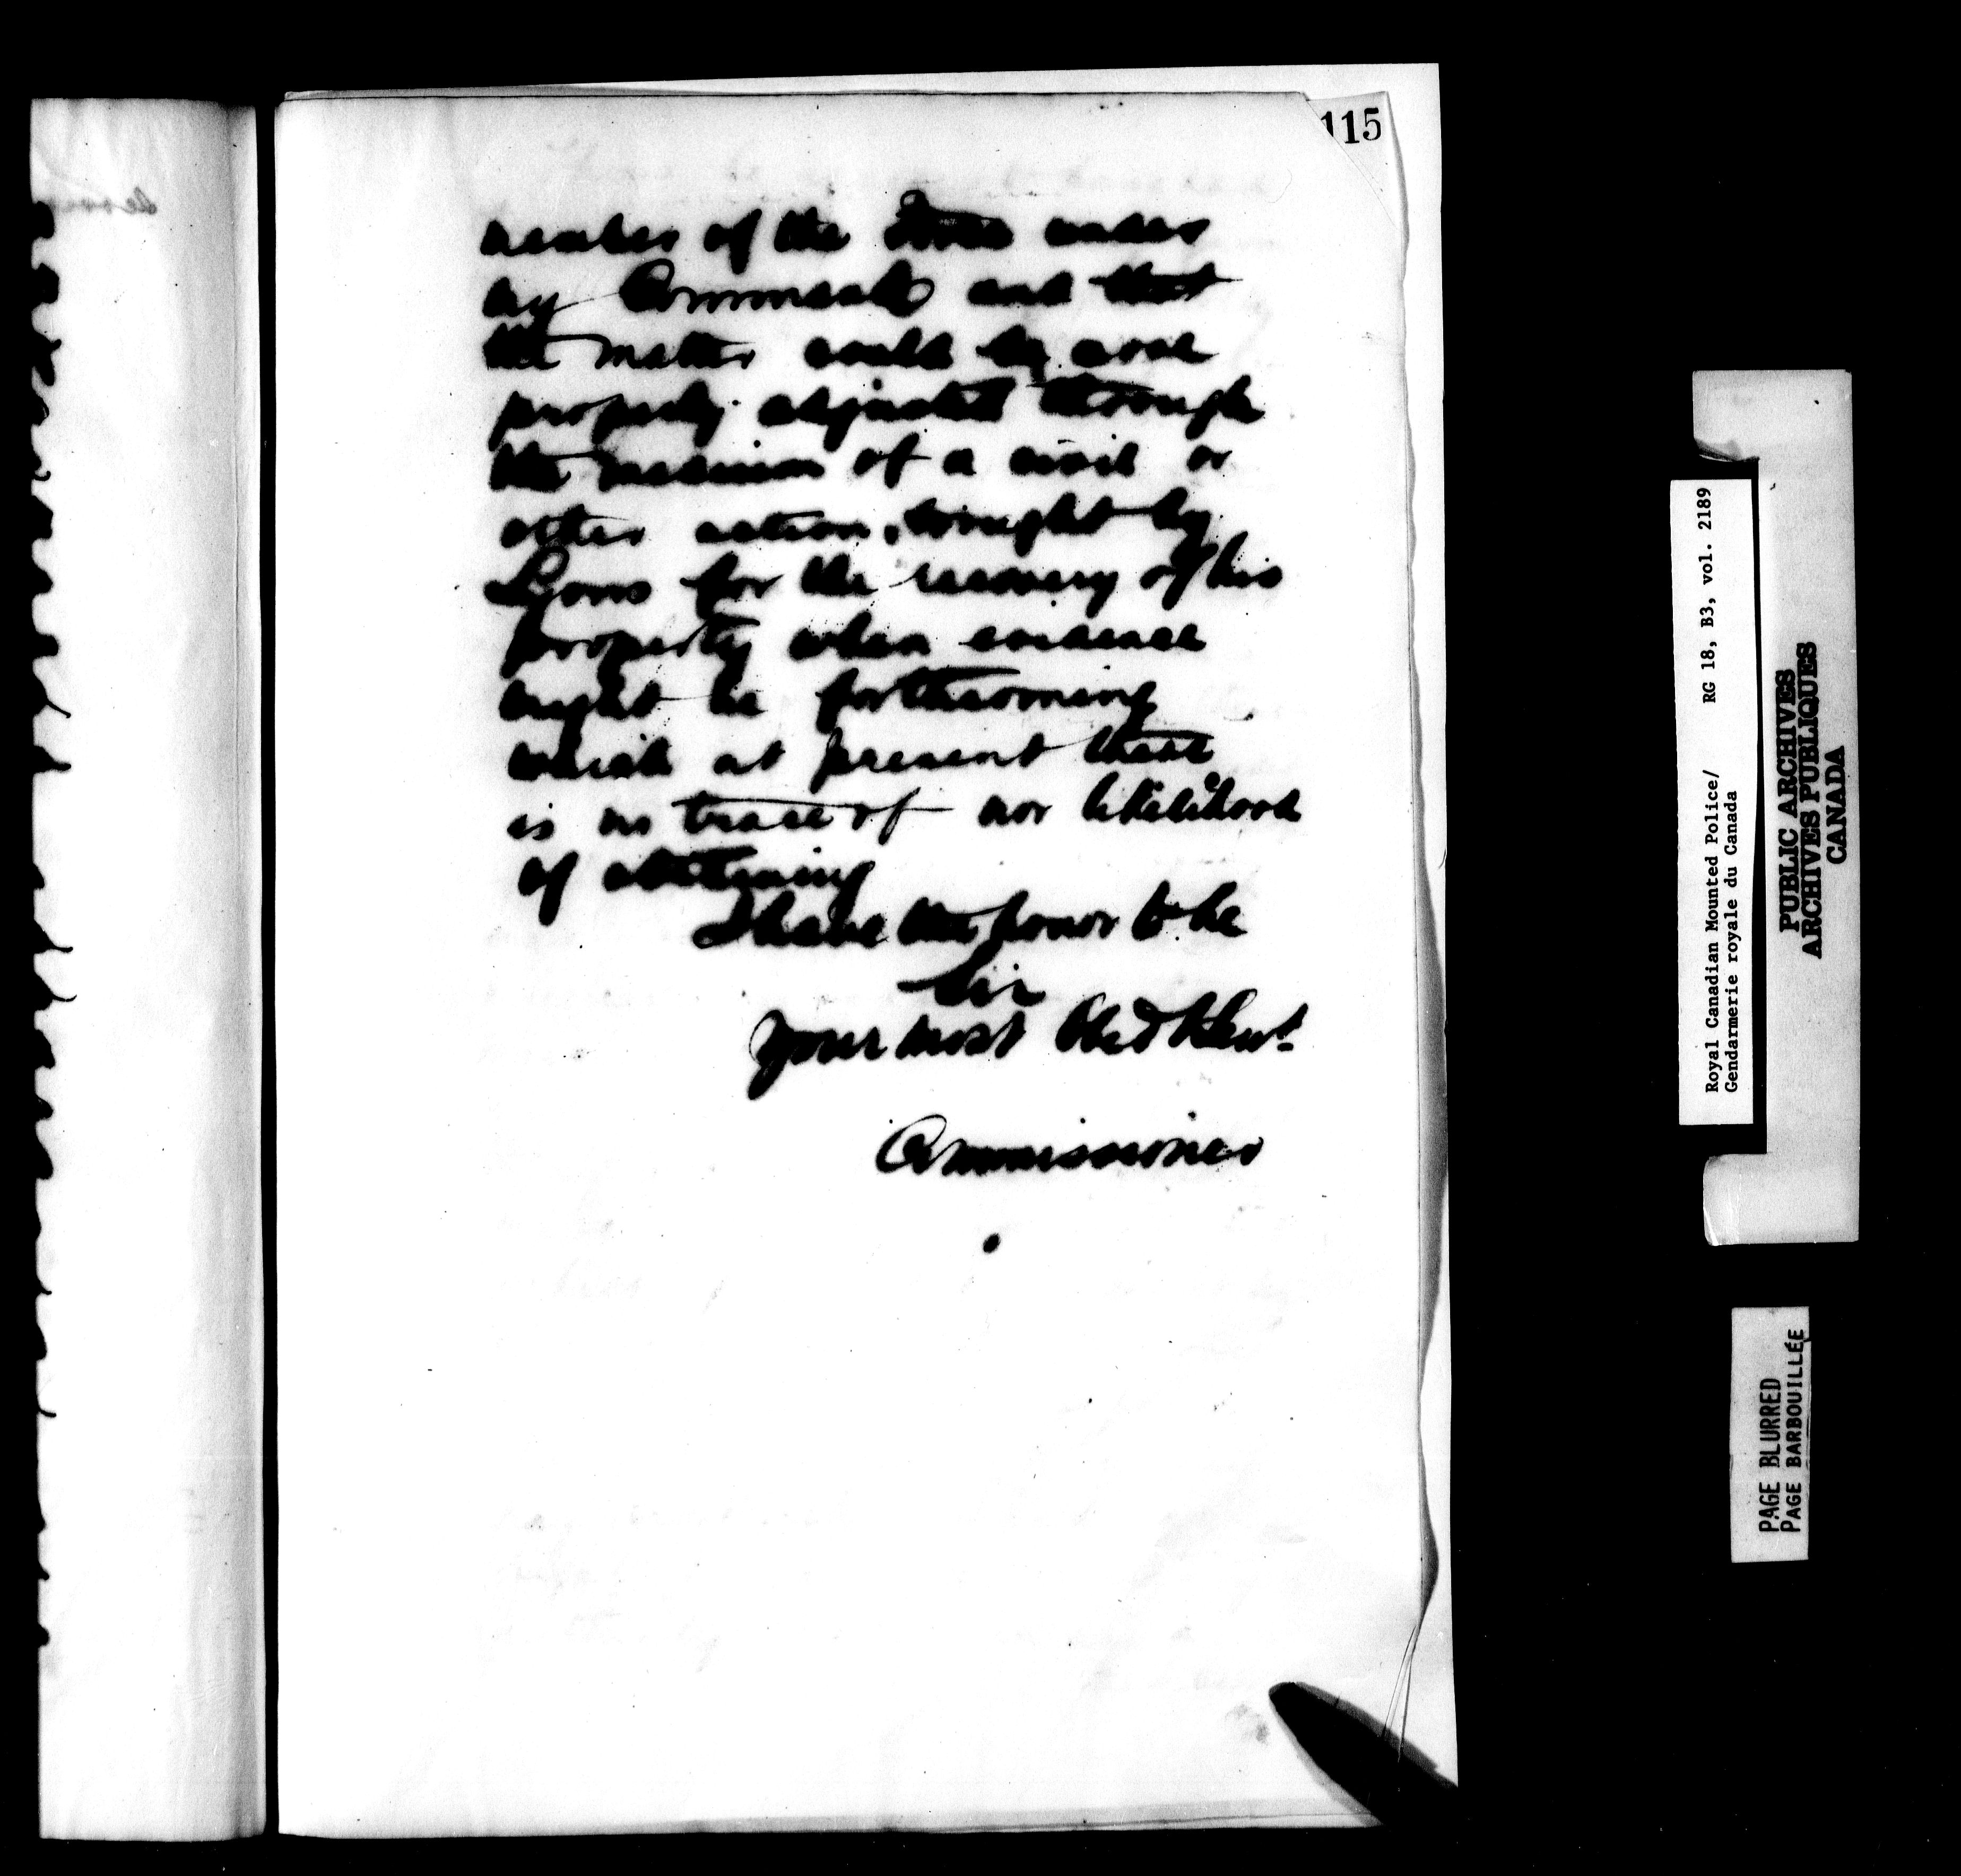 115
member of the Force under
my Command and that
the matter could be more
properly adjusted through
the medium of a civil or
other action, brought by
Lyons for the recovery of his
property when evidence
might be forthcoming
which at present there
is no trace of nor likelihood
of obtaining
I have the honor to be
Sir
Your most Obed Servt
Commissioner
Royal Canadian Mounted Police/ RG 18, B3, vol. 2189
Gendarmerie royale du Canada
PUBLIC ARCHIVES
ARCHIVES PUBLIQUES
CANADA
PAGE BLURRED
PAGE BARBOUILLÉE